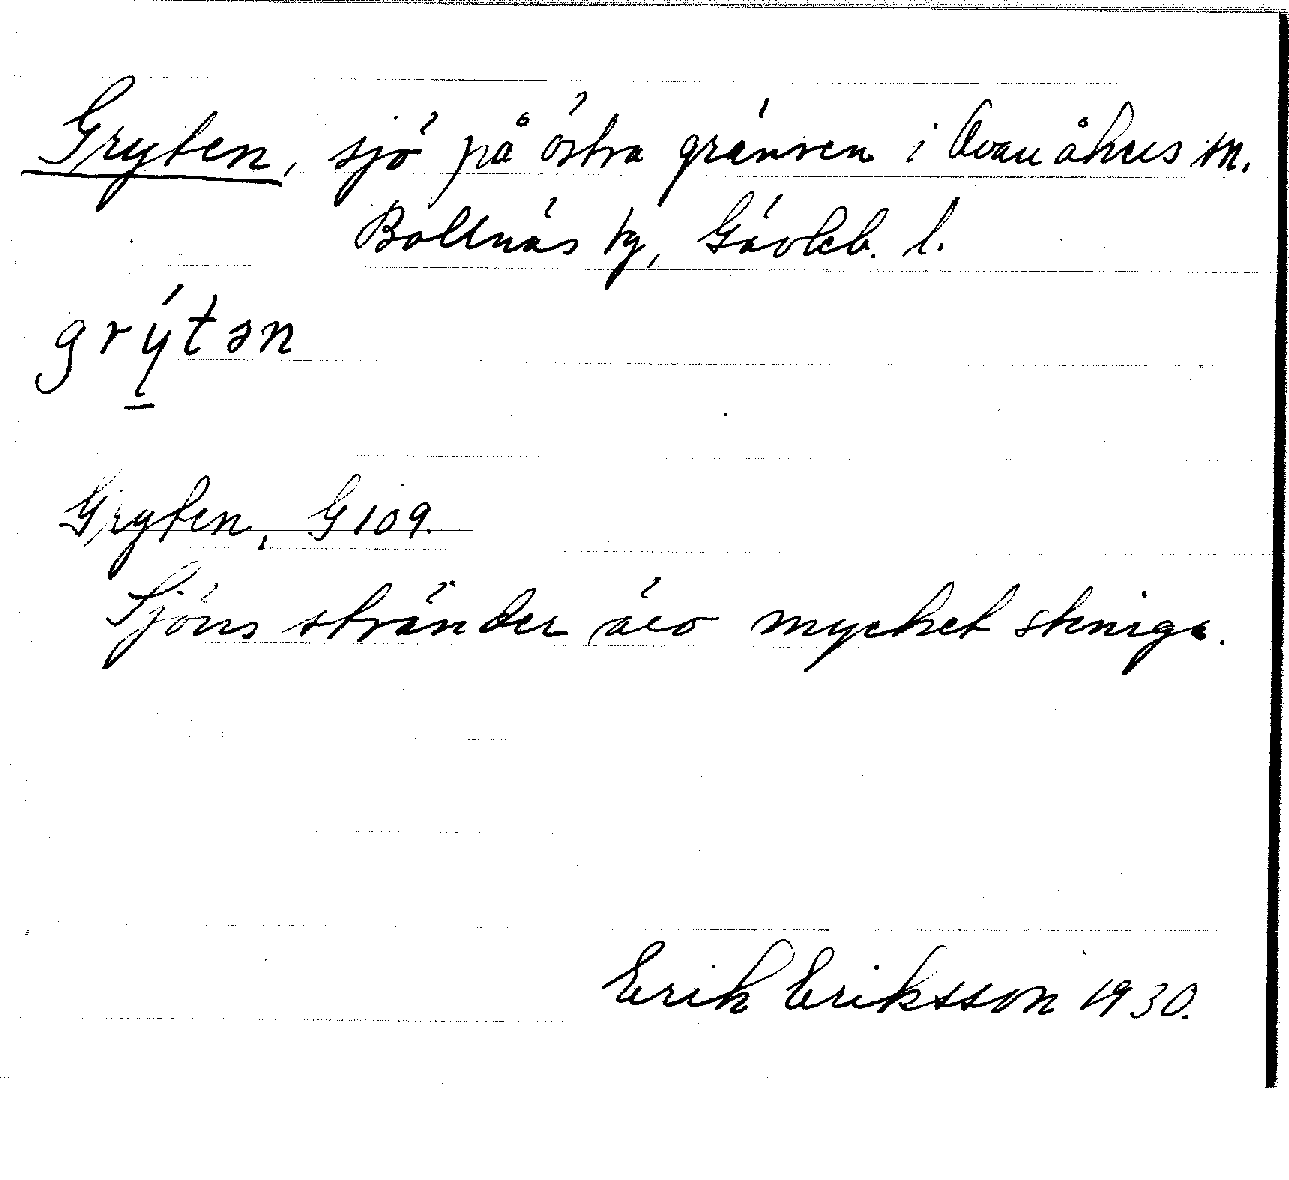 Gryten, sjö på östra gränsen i Ovanåkers sn.
Bollnäs tg, Gävleb. l.
grý̠tən
Gryten, G 109.
Sjöns stränder äro mycket steniga.
Erik Eriksson 1930.